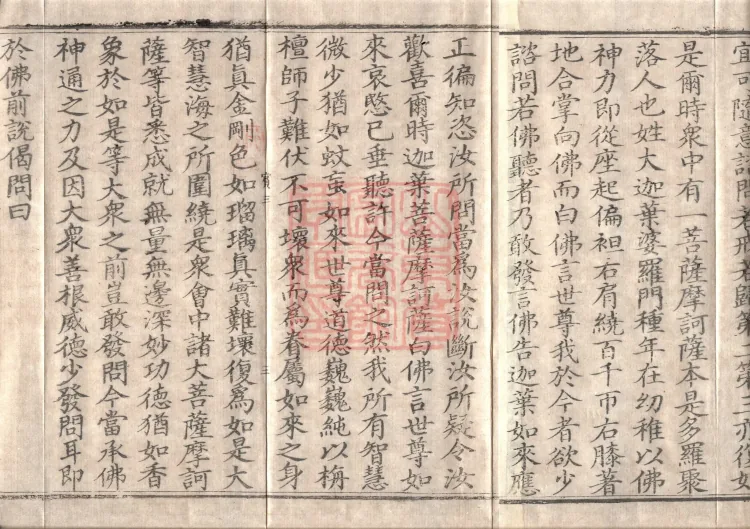 宜可隨意諮問若
第二第三亦復如
是爾時衆中有一菩薩摩訶薩本是多羅聚
落人也姓大迦葉婆羅門種年在幼稚以佛
神力即從座起偏袒右肩繞百千帀右膝著
地合掌向佛而白佛言世尊我於今者欲少
諮問若佛聽者乃敢發言佛告迦葉如來應
正徧知恣汝所問當爲汝說斷汝所疑令汝
歡喜爾時迦葉菩薩摩訶薩白佛言世尊如
來哀愍已垂聽許今當問之然我所有智慧
微少猶如蚊䖟如來世尊道德巍巍純以栴
檀師子難伏不可壞衆而爲眷屬如來之身
賓三
三
猶真金剛色如瑠璃真實難壞復爲如是大
智慧海之所圍繞是衆會中諸大菩薩摩訶
薩等皆悉成就無量無邊深妙功德猶如香
象於如是等大衆之前豈敢發問今當承佛
神通之力及因大衆善根威德少發問耳即
於佛前說偈問曰